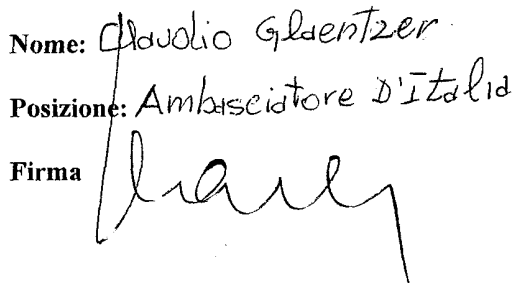 Nome: Claudio Glaentzer
Posizione: Ambasciatore D'Italia
Firma